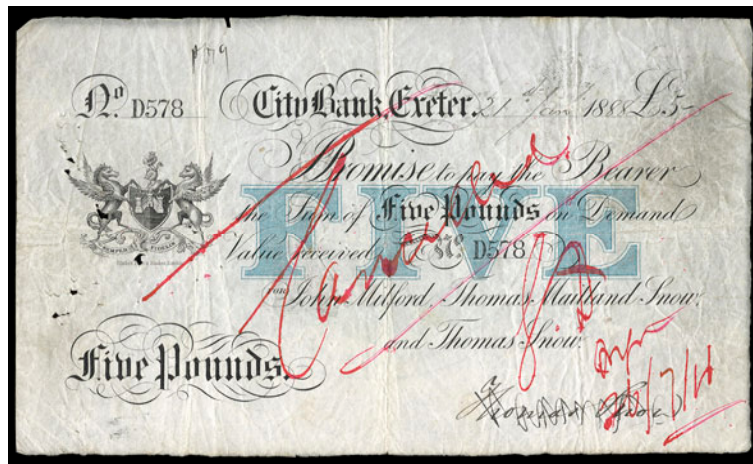 No D578 City Bank, Exeter. 21 Jan 1888 £5-
I Promise to pay the Bearer
FIVE
the Sum of Five Pounds on Demand
Value received No D578
SEMPER FIDELIS
FOR John Milford, Thomas Maitland Snow,
and Thomas Snow.
Five Pounds.
Cancelled
Thomas Snow